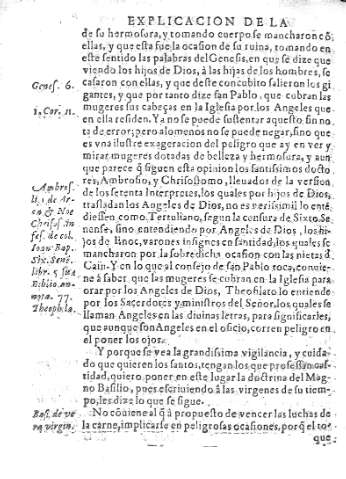 EXPLICACION DE LA
de su hermosura, y tomando cuerpo se mancharon cõ
ellas, y que esta fue la ocasion de su ruina, tomando en
este sentido las palabras del Genesis, en que se dize que
viendo los hijos de Dios, à las hijas de los hombres, se
Genes. 6.
casaron con ellas, y que deste concubito salieron los gi
gantes, y que por tanto dize san Pablo, que cubran las
1. Cor. 11.
mugeres sus cabeças en la Iglesia por los Angeles que
en ella residen. Ya no se puede sustentar aquesto sin no
ta de error; pero alomenos no se puede negar, sino que
es vna ilustre exageracion del peligro que ay en ver y
mirar mugeres dotadas de belleza y hermosura, y aun
que parece q̃ siguen esta opinion los santissimos docto
res, Ambrosio, y Chrisostomo, lleuados de la version
de los setenta Interpretes, los quales por hijos de Dios,
trasladan los Angeles de Dios, no es verisimil lo enté
diessen como Tertuliano, segun la censura de Sixto Se
nense, sino entendiendo por Angeles de Dios, los hi
jos de Enoc, varones insignes en santidad, los quales se
mancharon por la sobredicha ocasion con las nietas d̃
Cain. Y en lo que al consejo de san Pablo toca, conuie
ne à saber, que las mugeres se cubran en la Iglesia para
orar por los Angeles de Dios, Theofilato lo entiende
por los Sacerdotes y ministros del Señor, los quales se
llaman Angeles en las diuinas letras, para significarles,
que aunque son Angeles en el oficio, corren peligro en
el poner los ojos.
Ambros.
Noe
Chrisos.
Ioan Bap.
Six. Sené.
libr. 5
77.
Theophila.
Y porque se vea la grandissima vigilancia, y cuida-
do que quieren los santos, tengan los que professan cas
tidad, quiero poner en este lugar la doctrina del Mag
no Basilio, pues escriuiendo à las virgenes de su tiem-
po, les dize lo que se sigue.
Bas. de ve
ra virgin.
No cõuiene al q̃ à proposito de vencer las luchas de
la carne, implicarse en peligrosas ocasiones, porq̃ el to:
que